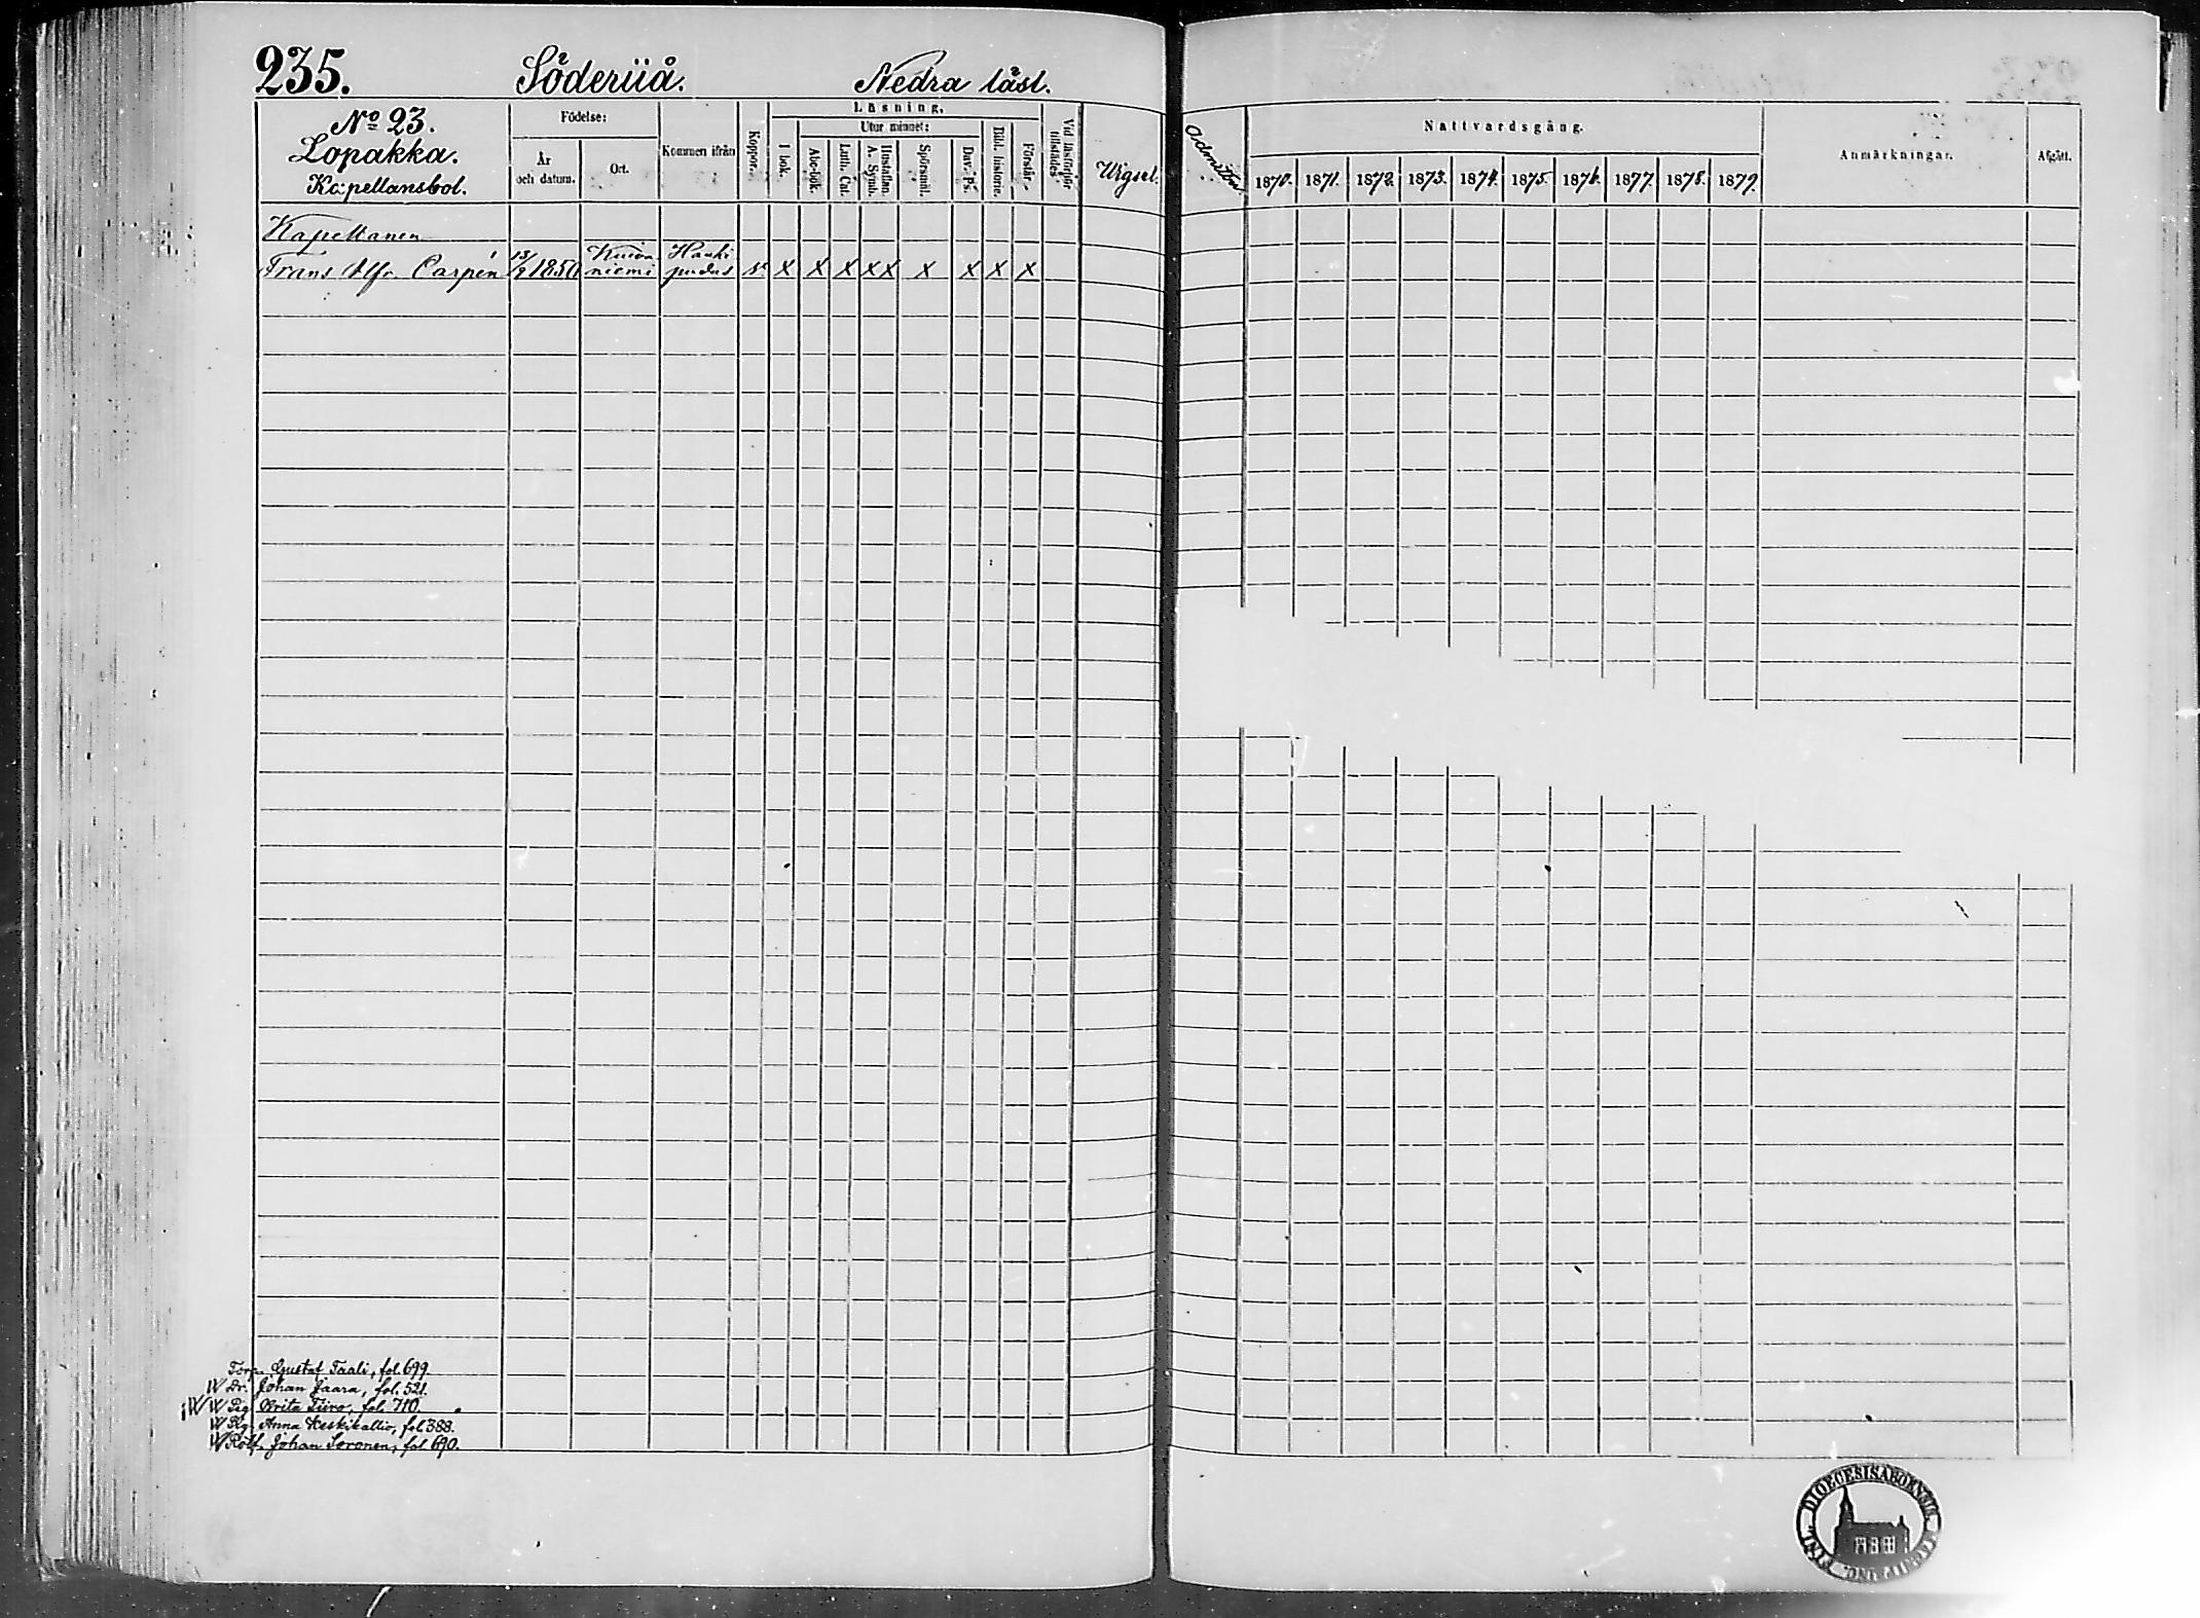 235. Söderiiå. Nedra läsl.
No 23.
Lopakka.
Kapellansbol.
Födelse:
År
och datum.
Ort.
Kommen ifrån
Koppor.
Läsning.
Utur minnet:
I bok.
Abc-bok.
Luth. Cat.
Hustaflan.
A. Symb.
Spörsmål.
Dav. ps.
Bibl. historie.
Förstår
Vid läsförhör
tillstädes
Wigsel.
Admitter.
Nattvardsgång.
1870. 1871. 1872. 1873. 1874. 1875. 1876. 1877. 1878. 1879.
Anmärkningar.
Afgått.
Kapellanen
Frans Alfr. Carpén 13/2 1850 Kuivaniemi Haukipudas x x x x x x x x x
Torp. Gustaf Taali, fol. 699.
Dr. Johan Jaara, fol. 521.
Pig Brita Tiiro, fol. 710.
Anna Keskikallio, fol 388.
Rotf. Johan Soronen, fol 690.
DIOECESIS ABOENSIS